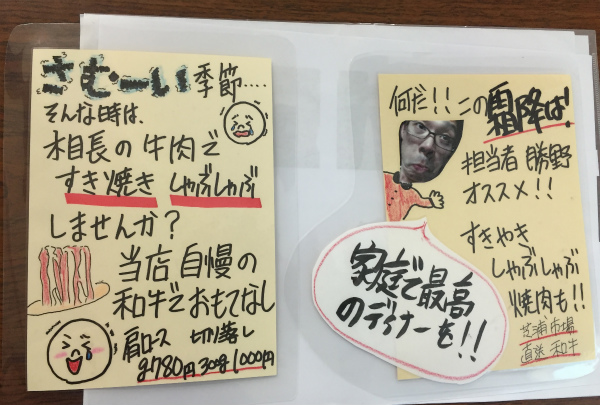 さむーい季節....
そんな時は、
相長の牛肉で
すき焼き しゃぶしゃぶ
しませんか?
当店自慢の
和牛でおもてなし
肩ロース 切り落し
g780円 300g1000円
何だ!!この霜降は!
担当者 勝野
オススメ!!
すきやき
しゃぶしゃぶ
焼肉も!!
芝浦市場
直送 和牛
家庭で最高
のディナーを!!